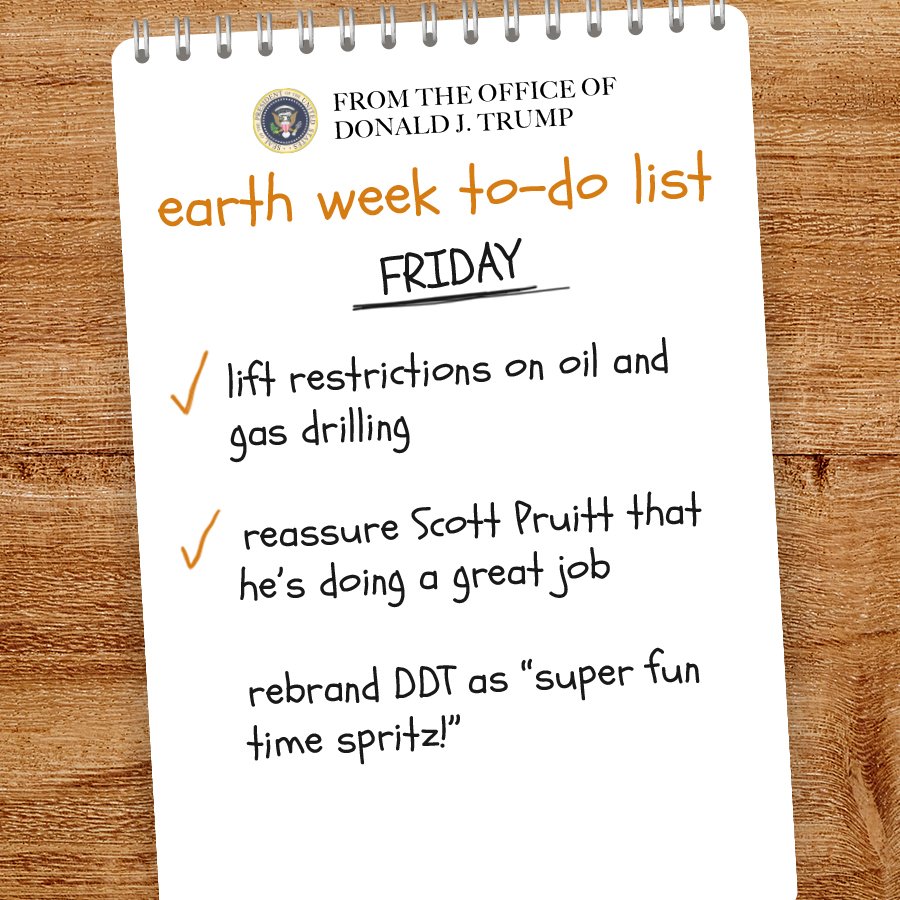 FROM THE OFFICE OF
DONALD J. TRUMP
earth week to-do list
FRIDAY
lift restrictions on oil and
gas drilling
reassure Scott Pruitt that
he's doing a great job
rebrand DDT as "super fun
time spritz!"